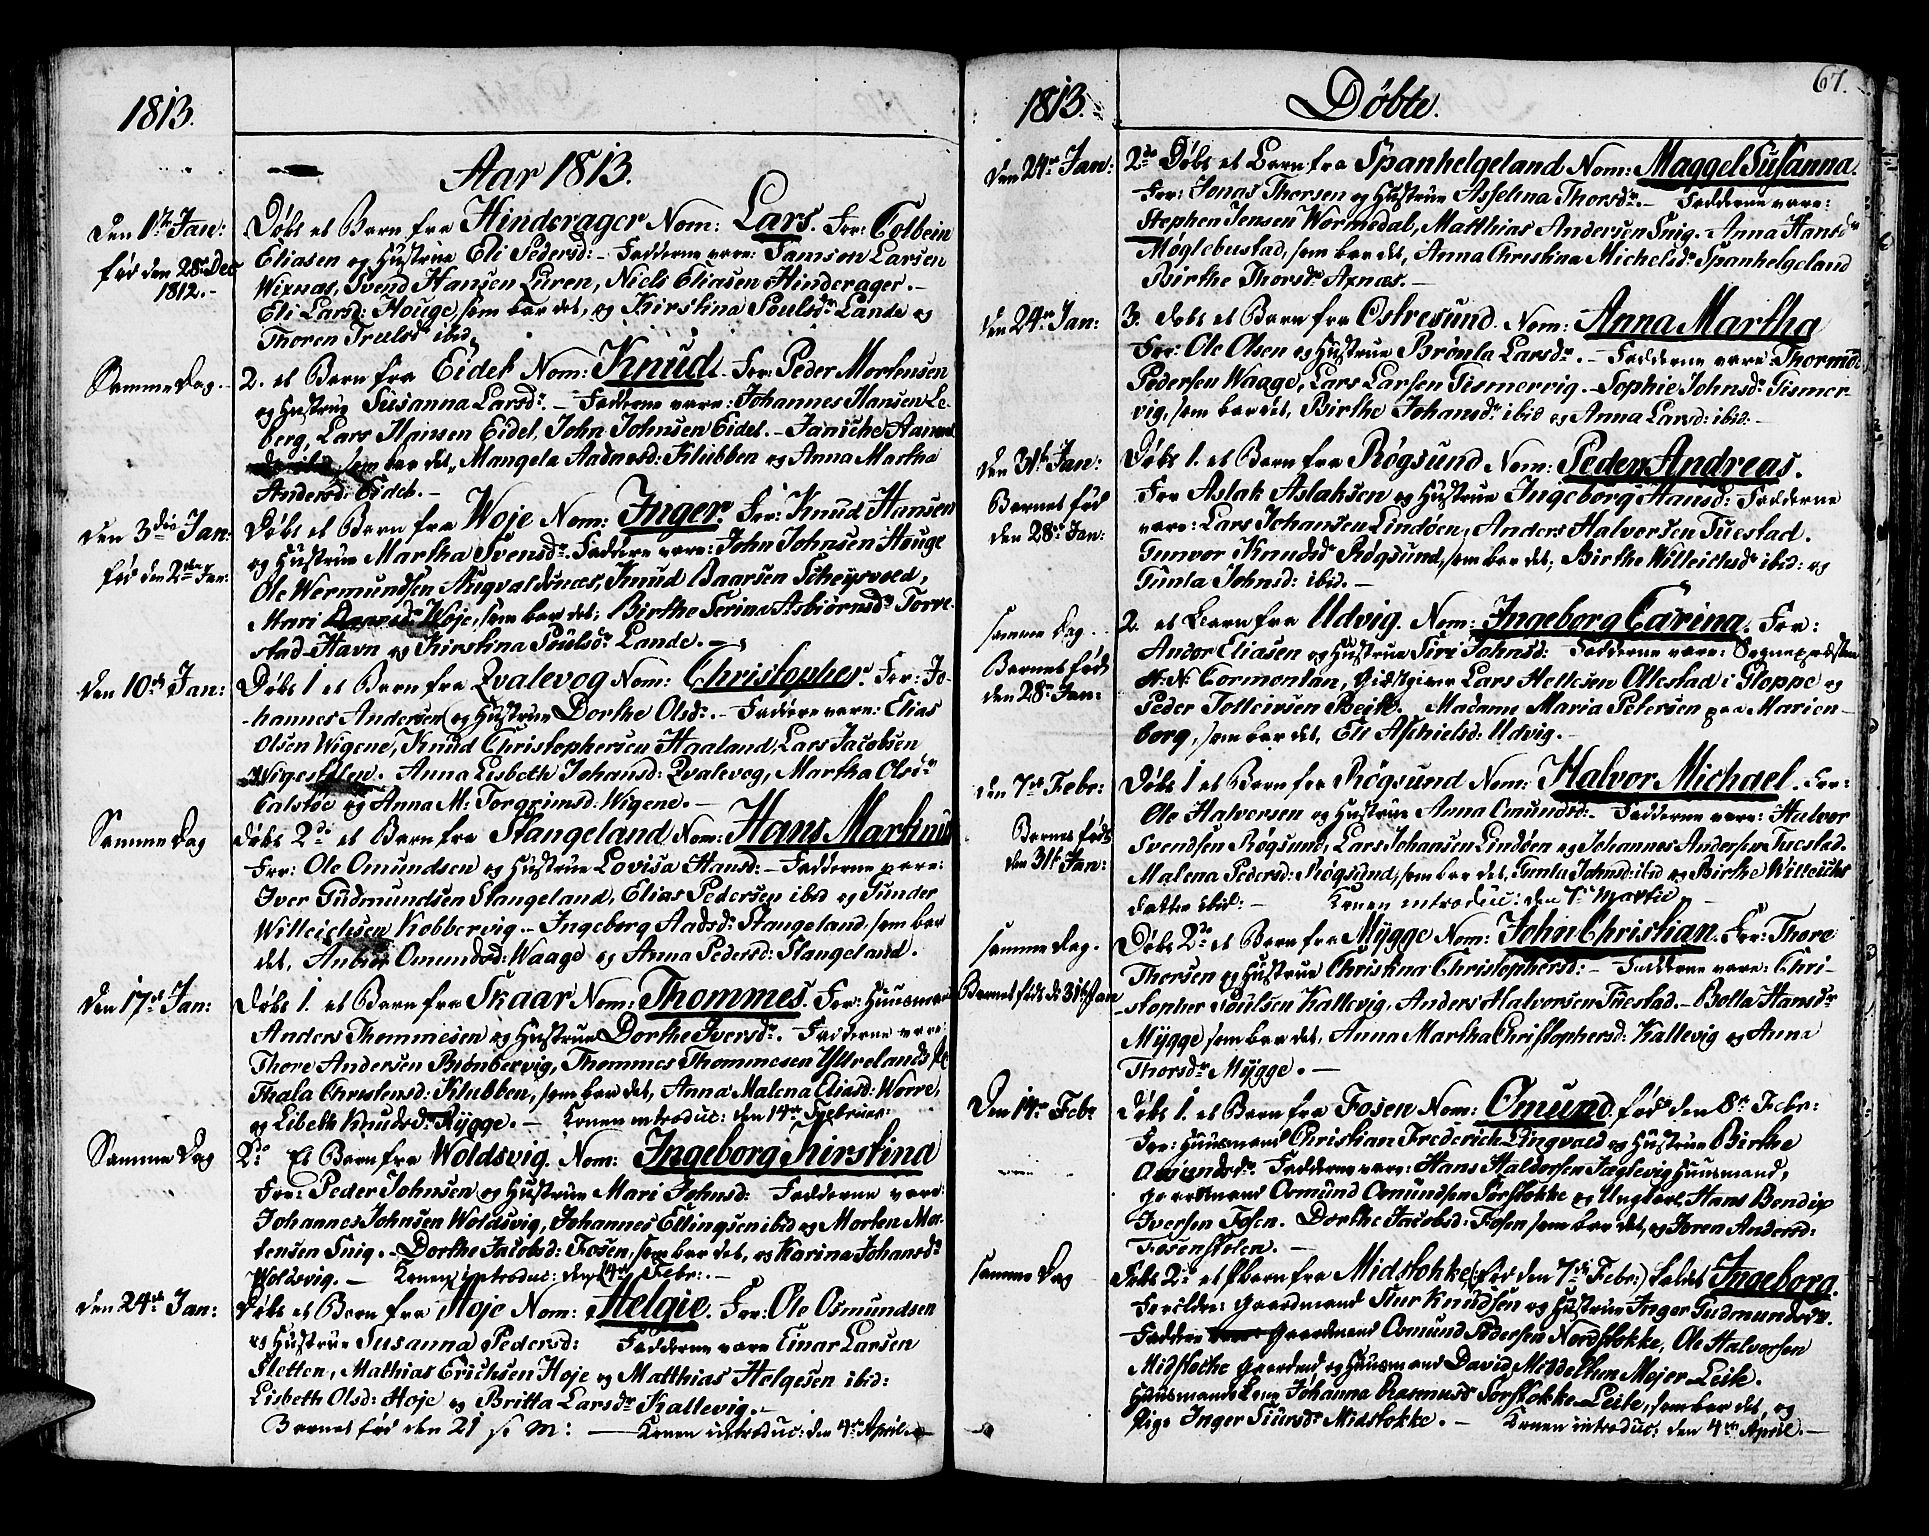 1813.
Aar 1813.
Den 1ste Jan:
fød den 28de Dec
1812.-
Døbt et Barn fra Hinderager Nom: Lars. For: Colbein
Eliasen og Hustrue Eli Pedersd:- Fadderne vare: Samson Larsen
Wixnæs, Svend Hansen Liiren, Niels Eliasen Hinderager.-
Eli Larsd: Houge, som bar det, og Kirstina Poulsdr Lande og
Thoren Treelsdr ibid.
Samme Dag.
2. et Barn fra Eidet Nom: Knud. For: Peder Mortensen
og Hustrue Susanna Larsdr.- Fadderne vare: Johannes Hansen Le-
berg, Lars Hansen Eidet, John Johnsen Eidet.- Janiche
som bar det, Mangela Aadnesd: Klubben og Anna Martha
Andersd: Eidet.-
Den 3die Jan:
fød den 2den Jan:
Døbt et Barn fra Woje Nom: Inger. For: Knud Hansen
og Hustrue Martha Svensdr. Faddere vare: John Johnsen Houge
Ole Wermundsen Augvaldsnæs, Knud Baarsen Scheysvold,
Mari Baarsdr Woje, som bar det; Birthe Serina Asbiørnsdr Torve-
stad-Havn og Kirstina Poulsdr Lande.-
Den 10de Jan:
Døbt 1 et Barn fra Qvalevog Nom: Christopher. For: Jo-
hannes Andersen og Hustrue Dorthe Olsdr.- Faddere vare: Elias
Olsen Wigene, Knud Christophersen Haaland, Lars Jacobsen
Wigestølen. Anna Lisbeth Johansd: Qvalevog, Martha Olsdr
Calstøe og Anna M: Torgrimsd: Wigene.-
Samme Dag
Døbt 2di et Barn fra Stangeland Nom: Hans Martinus
For: Ole Omundsen og Hustrue Lovisa Hansd:- Fadderne vare:
Iver Gudmundsen Stangeland, Elias Pedersen ibid og Gunder
Willeichsen Kobbervig.- Ingeborg Aadsd: Stangeland, som bar
det, Omundsd: Waage og Anna Pedersd: Stangeland.
Den 17de Jan:
Døbt 1. et Barn fra Skaar Nom: Thommes. For: Huusmand
Anders Thommesen og Hustrue Dorthe Iversdr. Fadderne vare
Thore Andersen Biønbervig, Thommes Thommesen Yttreland
Thala Christensd: Klubben, som bar det, Anna Malena Eliasd: Worre,
og Lisbeth Knudsdr Rygge.- Konen introduc: den 14de Februar:
Samme Dag
2di Et Barn fra Woldsvig. Nom: Ingeborg Kirstina
For: Peder Johnsen og Hustrue Mari Johnsd: Fadderne vare:
Johannes Johnsen Woldsvig, Johannes Ellingsen ibid og Morten Mor-
tensen Snig.- Dorthe Jacobsd: Fosen, som bar det, og Karina Johansdr
Woldsvig.- Konen introduc: den 14de Febr:-
Den 24de Jan:
Døbt et Barn fra Hoje Nom: Helgie. For: Ole Osmundsen
og Hustrue Susanna Pedersd: Fadderne vare Einar Larsen
Sletten, Mathias Erichsen Hoje og Matthias Helgesen ibid:
Lisbeth Olsd: Hoje og Britta Larsdr Kallevig.-
Barnet fød den 21 s: M: - Konen introduc: den 4de April.
1813.
Døbte.
67.
Den 24de Jan:
2de Døbt et Barn fra Spanhelgeland Nom: Maggel Susanna.
For: Jonas Thorsen og Hustrue Asselina Thorsdr.- Fadderne vare:
Stephen Jensen Wormedal, Matthias Andersen Snig.- Anna Hansdr
Møglebustad, som bar det, Anna Christina Michelsdr Spanhelgeland
Birthe Thorsdr Axnæs.-
Den 24de Jan:
3. Døbt et Barn fra Ostresund. Nom: Anna Martha
For: Ole Olsen og Hustrue Brønla Larsdr.- Fadderne vare: Thormo
Pedersen Waage, Lars Larsen Gismervig.- Sophie Johnsdr Gismer-
vig, som bar det, Birthe Johansdr ibid og Anna Larsd: ibid:-
Den 31te Jan:
Barnet fød
den 28de Jan:
Døbt 1. et Barn fra Røgsund Nom: Peder Andreas.
For Aslak Aslaksen og Hustrue Ingeborg Hansd: Fadderne
vare: Lars Johansen Lindøen, Anders Halversen Tuestad.
Gunvor Knudsdr Røgsund, som bar det, Birthe Willeichsdr ibid: og
Gunla Johnsd: ibid.-
samme Dag.
Barnet fød
den 28de Jan:
2. et Barn fra Udvig. Nom: Ingeborg Carina. For:
Andor Eliasen og Hustrue Siri Johnsd: Fadderne vare: Sognepræsten
H. N: Cormontan, Giæstgiver Lars Hellesen Oltestad i Gloppe og
Peder Tolleivsen Beik. Madame Maria Petersen paa Marien-
borg, som bar det, Eli Aschielsd: Udvig.-
Den 7de Febr:
Barnet født
den 31te Jan:
Døbt 1 et Barn fra Røgsund Nom: Halvor Michael. For:
Ole Halversen og Hustrue Anna Omundsd:- Fadderne vare: Halvor
Svendsen Røgsund, Lars Johansen Lindøen og Johannes Andersen Tuestad.
Malena Pedersd: Røgsund, som bar det, Gunla Johnsd: ibid og Birthe Willeichs
datter ibid:- Konen introduc: den 7de Martii.-
samme Dag.
Barnet født d: 31te Jan
Døbt 2de et Barn fra Mygge Nom: John Christian. For: Thore
Thorsen og Hustrue Christina Christophersd:- Fadderne vare: Chri-
stopher Poulsen Kallevig, Anders Halvorsen Tuestad.- Bolla Hansdr
Mygge som bar det, Anna Martha Christophersd: Kallevig og Anna
Thorsdr Mygge.-
Den 14de Febr
Døbt 1. et Barn fra Fosen Nom: Omund. fød den 8de Febr:
For: Huusmand Christian Frederich Lingvold og Hustrue Birthe
Omundsdr. Fadderne vare: Hans Haldorsen Fæglevig Huusmand,
Gaardmand Osmund Osmundsen Sørstokke og Ungkarl Hans Bendix
Iversen Fosen. Dorthe Jacobsd: Fosen som bar det, og Soren Andersd:
Fosenstølen.-
samme Dag
Døbt 2de et Pbarn fra Midstokke (fød den 7de Febr:) kaldet Ingeborg.
Forældre: Gaardmand Siur Knudsen og Hustrue Inger Gudmundsdr.
Faddere Gaardmand Osmund Pedersen Nordstokke, Ole Halvorsen
Midstoche Gaardmd og Huusmand David Middelthun Mejer Leite.
Huusmands Kone Johanna Rasmusdr Sørstokke Leite, som bar det, og
Pige Inger Siursdr Midstokke.- Konen introduc: den 4de April.-